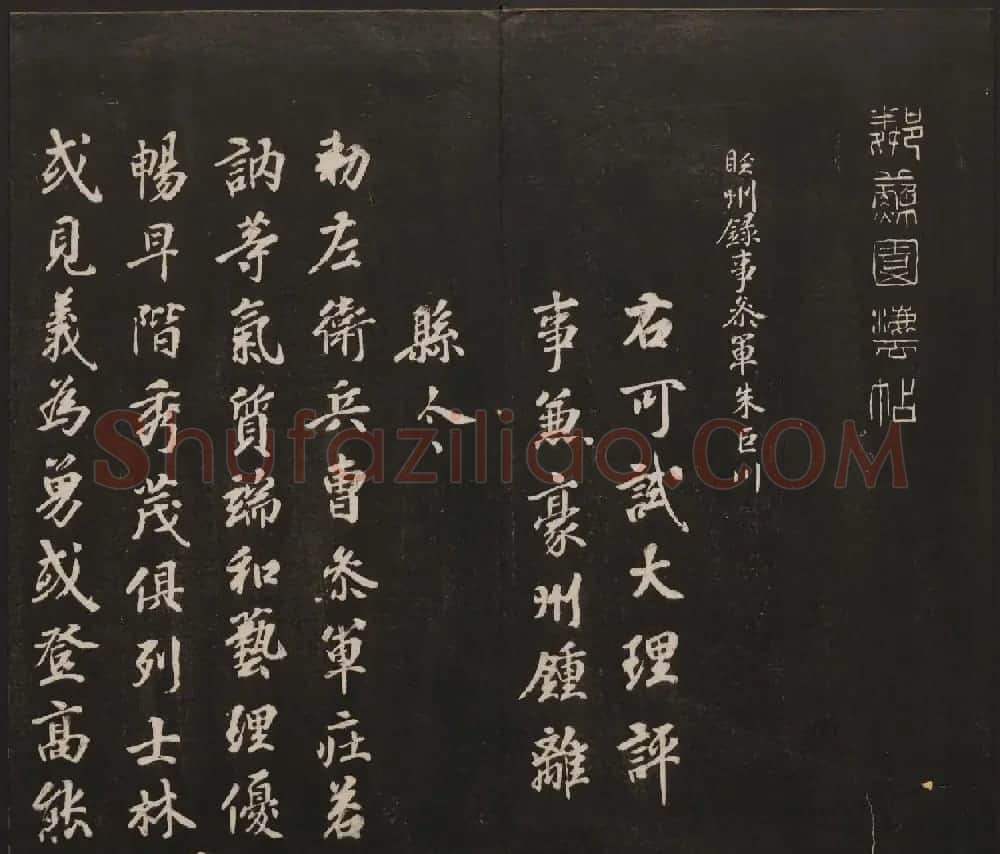 鄰蘇園法帖
睦州録事參軍朱巨川
右可試大理評
事兼豪州鍾離
縣令
勑左衛兵曹參軍莊若
訥等氣質端和藝理優
暢早階秀茂俱列士林
或見義為勇或登高能
Shufaziliao.COM